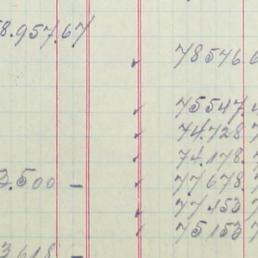 8.957.67
78546.6
75547.
74.728 7
74.178.7
3.500 — 77678.7
77153 7
75153 7
3618 —